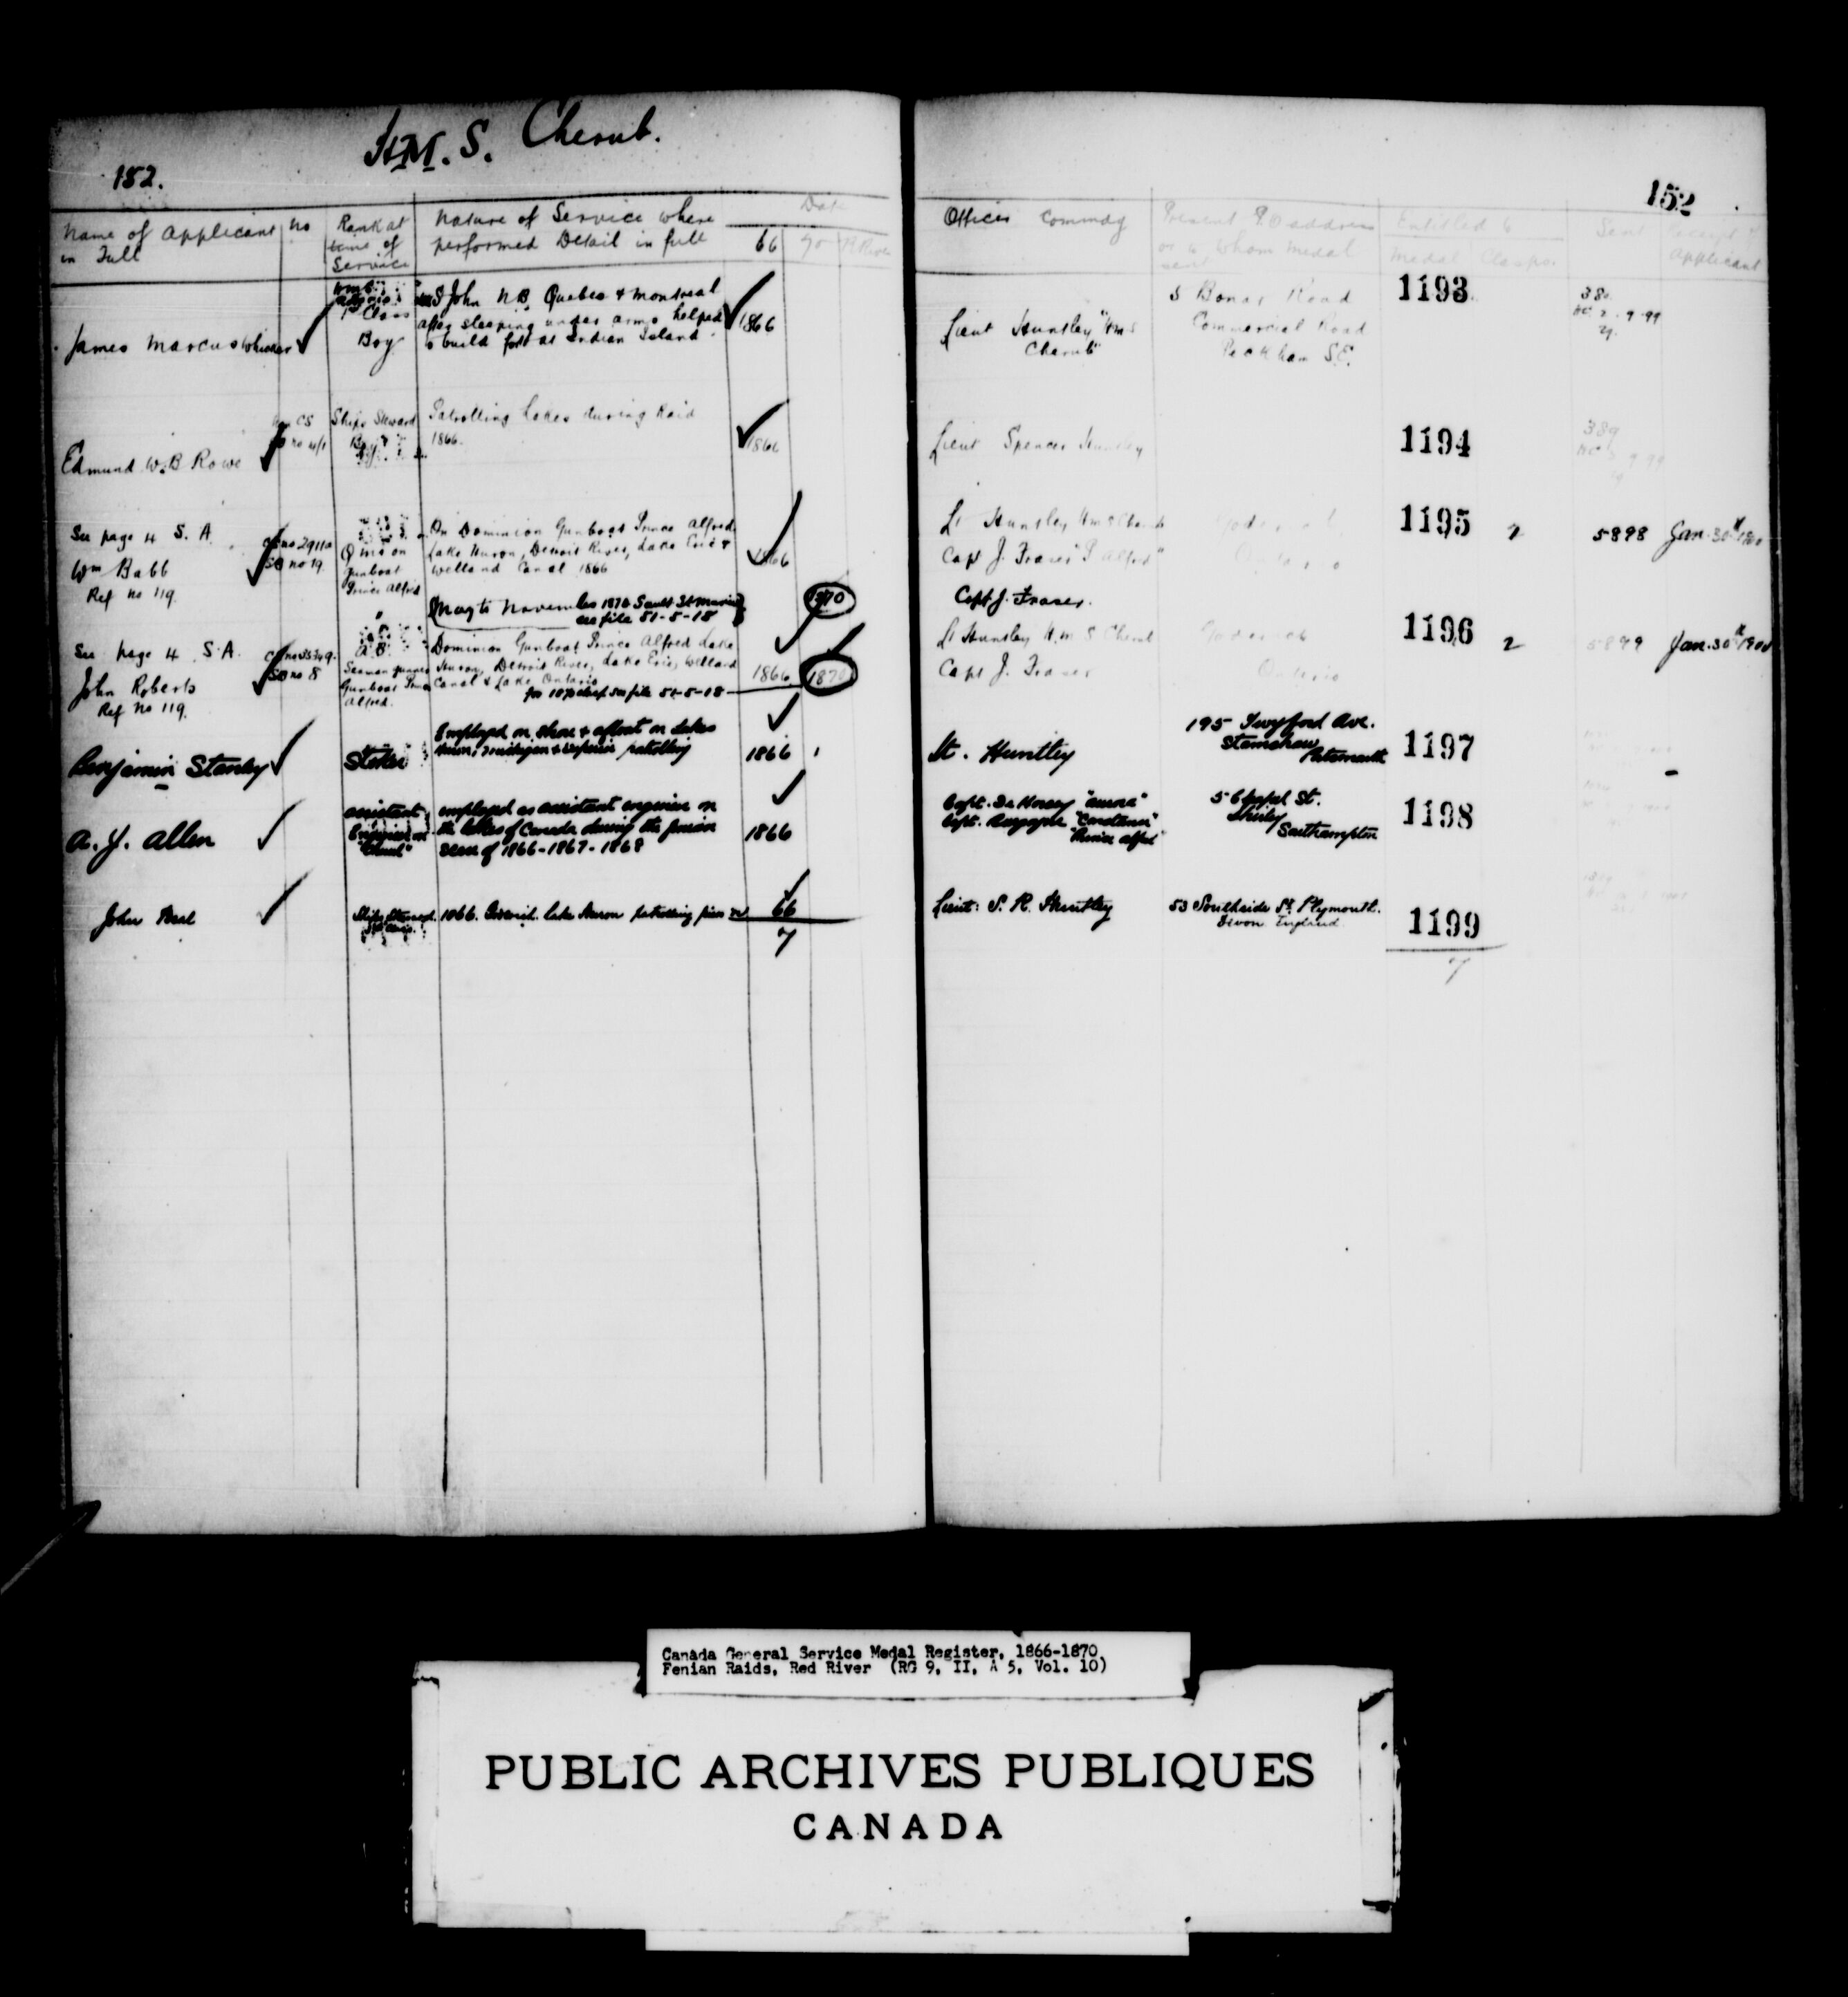 H.M.S. Cherub.
152.
152
Name of Applicant in Full
No
Rank at time of Service
Nature of Service where performed Detail in full
Date
66
70
R River
Officer Commdg
Present P.O address or to whom medal sent
Entitled to
Medal Clasps
Sent
Receipt of Applicant
James Marcus Whicher
1st Class
Boy
St John NB, Quebec & Montreal
after sleeping under arms helped
to build fort at Indian Island
1866
Lieut Huntley "HMS
Cherub"
5 Bonar Road
Commercial Road
Peckham SE.
1193
Edmund W.B Rowe
Ships Steward
Boy
Patrolling Lakes during Raid
1866.
1866
Lieut Spencer Huntley
1194
See page 4 S. A.
Wm Babb
Ref no 119.
Q M S on
Gunboat
Prince Alfred
On Dominion Gunboat Prince Alfred
Lake Huron, Detroit River, Lake Erie &
Welland Canal 1866
May to November 1870 Sault St Marie
see file 51-5-18
1866
1870
Lt Huntley HMS Cherub
Capt J. Fraser "P Alfred"
Capt J. Fraser.
Goderich
Ontario
1195
2
5898
Jan. 30th 1900
See page 4 S.A.
John Roberts
Ref no 119.
A.B.
Seaman gunner
Gunboat Prince
Alfred.
Dominion Gunboat Prince Alfred Lake
Huron, Detroit River, Lake Erie, Welland
Canal & Lake Ontario
for 1870 clasp see file 51-5-18
1866
1870
Lt Huntley H.M.S Cherub
Capt J. Fraser
Goderich
Ontario
1196
2
5899
Jan. 30th 1900
Benjamin Stanley
Stoker
Employed on shore & afloat on Lakes
Huron, Michigan & Superior patrolling
1866
Lt. Huntley
195 Twyford Ave.
Stamshaw
Portsmouth
1197
A. J. Allen
Assistant
Engineer on
"Cherub"
employed as assistant engineer on
the lakes of Canada during the fenian
scare of 1866-1867-1868
1866
Capt. De Horsey "Aurora"
"Constance"
"Prince Alfred"
Shirley
Southampton
1198
John Neal
Ships Steward
1866. Goderich. Lake Huron patrolling
66
7
Lieut: S. R. Huntley
53 Southside St Plymouth.
Devon England
1199
7
Canada General Service Medal Register, 1866-1870
Fenian Raids, Red River (RG 9, II, A 5, Vol. 10)
PUBLIC ARCHIVES PUBLIQUES
CANADA